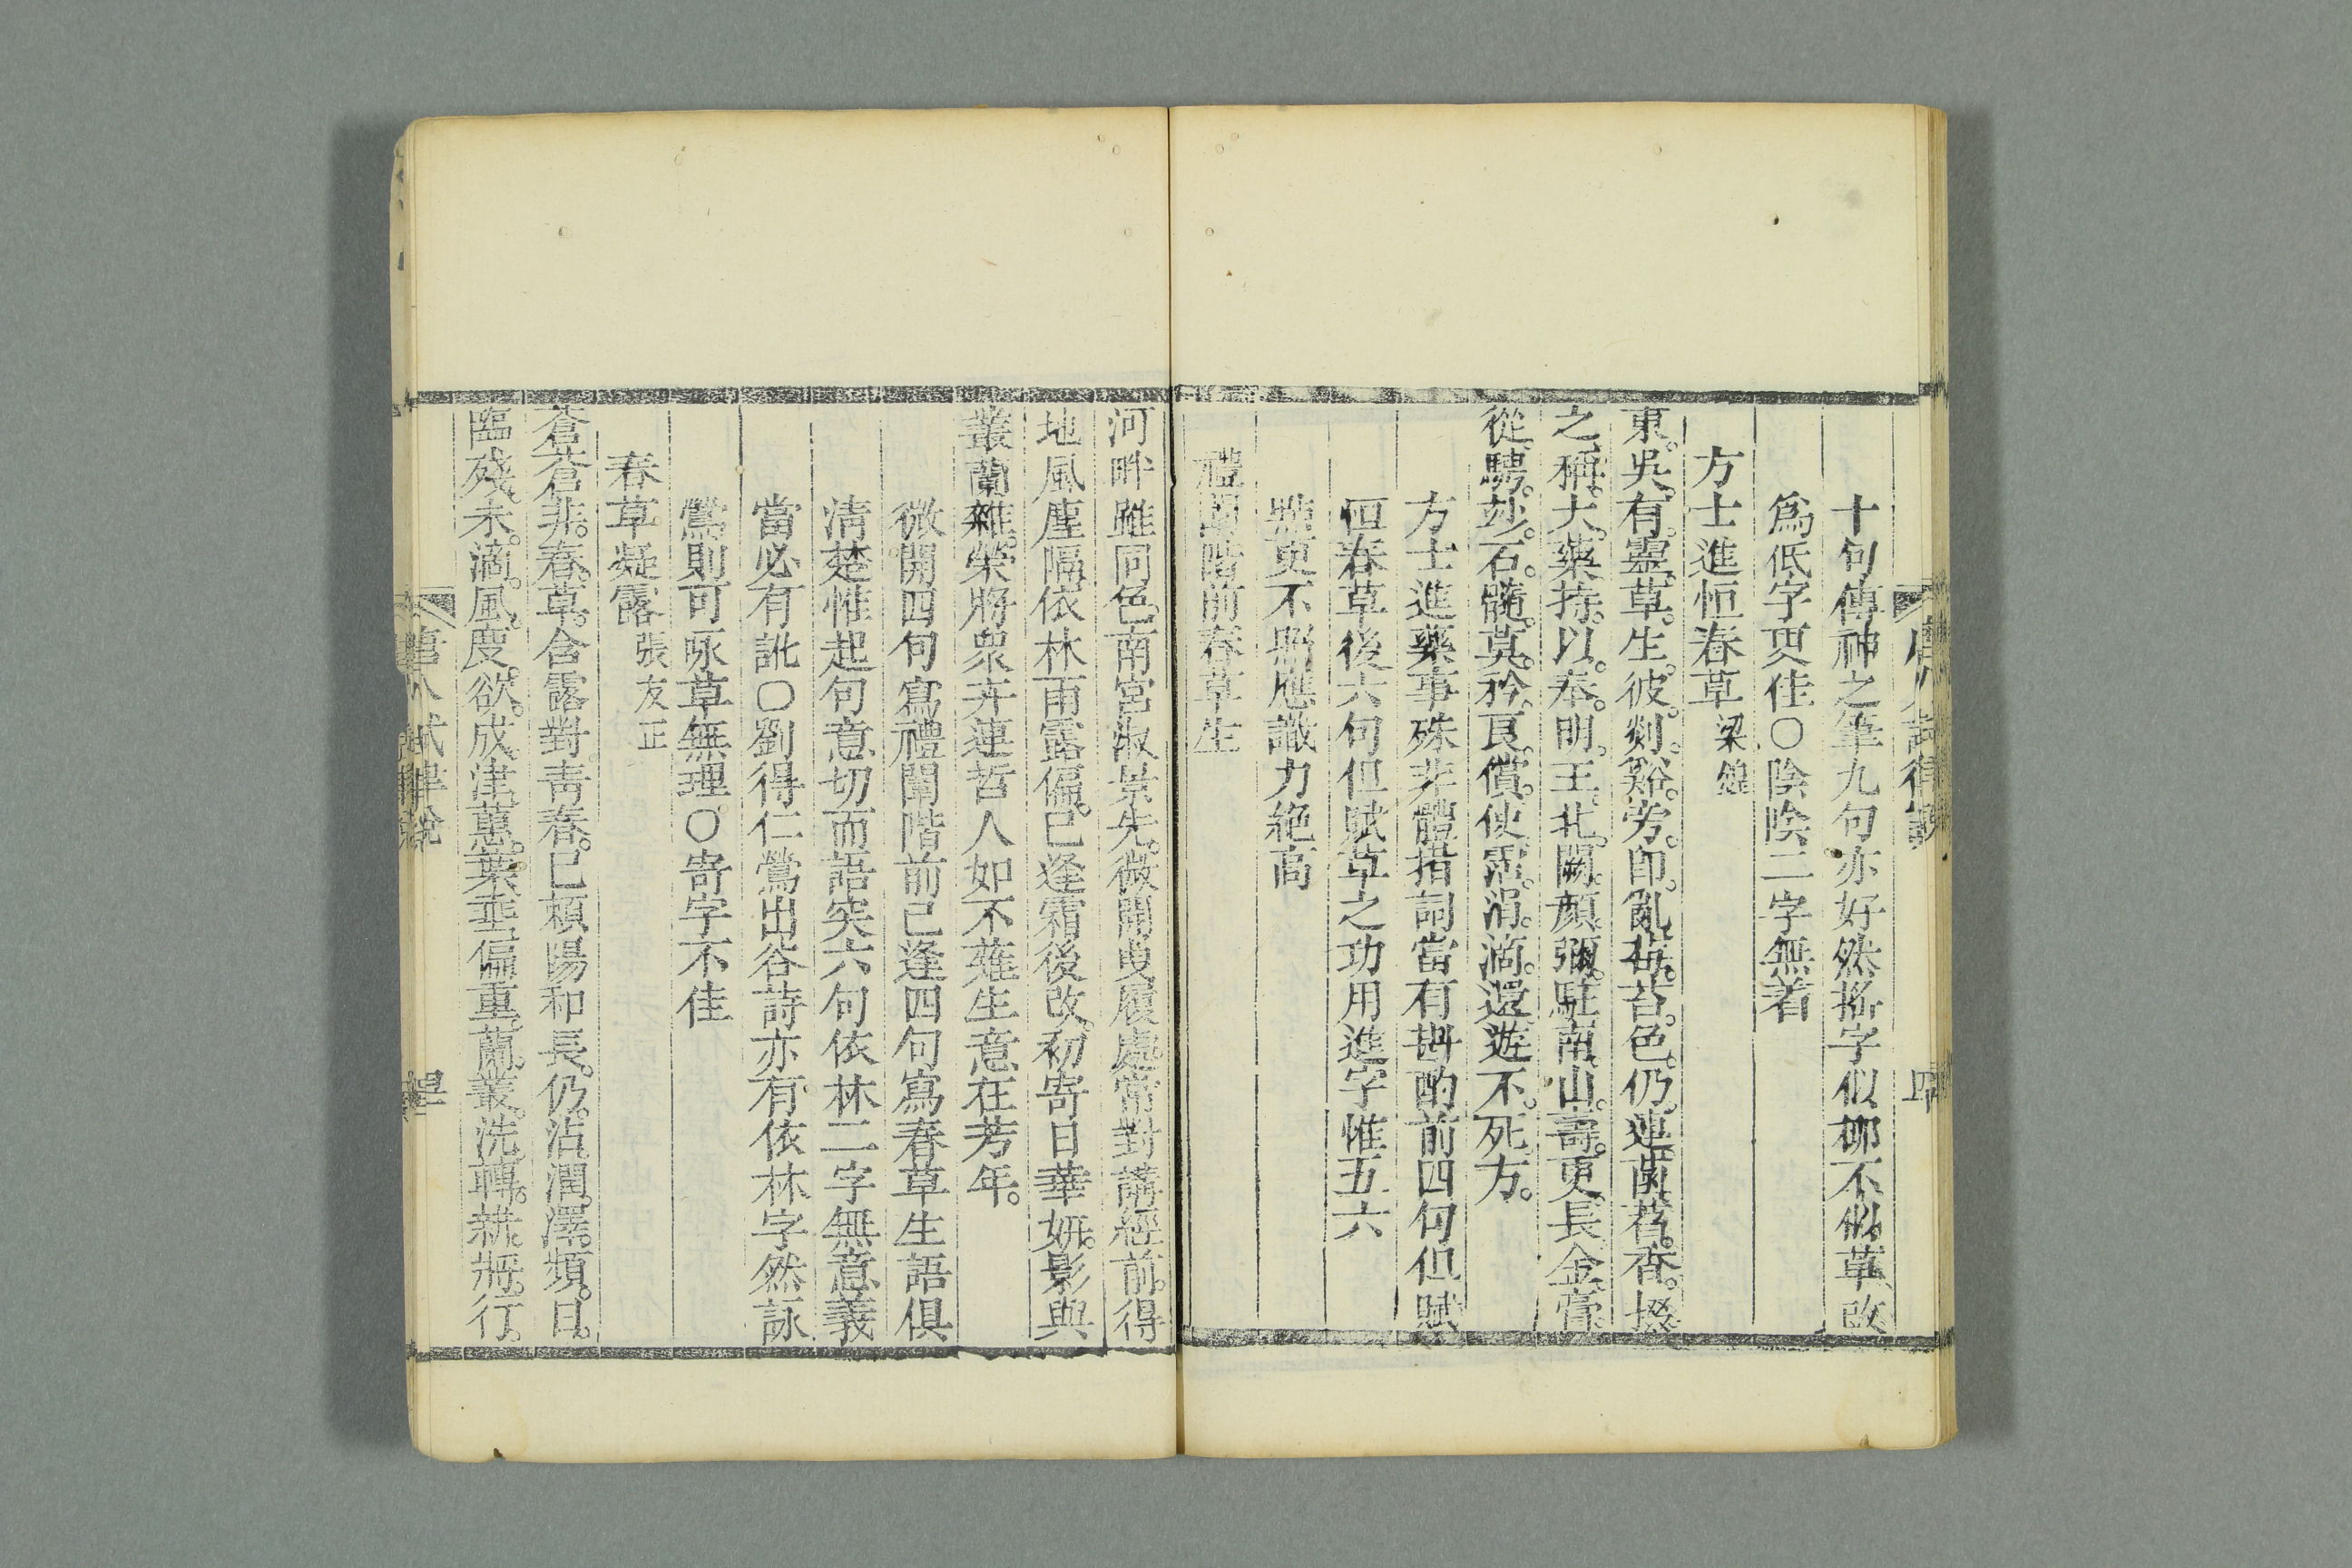 十句傳神之筆九句亦好然搖字似柳不似草改
爲低字更佳〇陰陰二字無着
方士進恒春草 梁鍠
東吳有靈草生彼剡谿旁卽亂莓苔色仍連菌萏香掇
之稱大藥持以奉明王北闕顔彌駐南山壽更長金膏
從騁妙石髓莫矜良儻使霑涓滴還遊不死方
方士進藥事殊非體措詞當有斟酌前四句但賦
恒春草後六句但賦草之功用進字惟五六
點更不黏應識力絶高
禮闈階前春草生
河畔雖同色南宮淑景先微開曳履處常對講經前得
地風塵隔依林雨露偏已逢霜後改初寄日華姸影與
叢蘭雜榮將衆卉連哲人如不薙生意在芳年
微開四句寫禮闈階前已逢四句寫春草生語俱
清楚惟起句意切而語突六句依林二字無意義
當必有訛〇劉得仁鶯出谷詩亦有依林字然詠
鶯則可咏草無理〇寄字不佳
春草凝露 張友正
蒼蒼非春草含露對靑春已頼陽和長仍沾潤澤頻日
臨殘未滴風度欲成津蕙葉垂偏重蘭叢洗轉新將行
唐人試律說